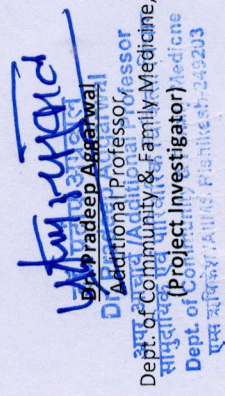 Dr. Pradeep Aggarwal
Additional Professor
Dept. of Community & Family Medicine,
(Project Investigator)
अपर आचार्य (Additional Professor
सामुदायिक एवं पारिवारिक
Dept. of Community Medicine
एम्स ऋषिकेश / AIIMS, Rishikesh-249203